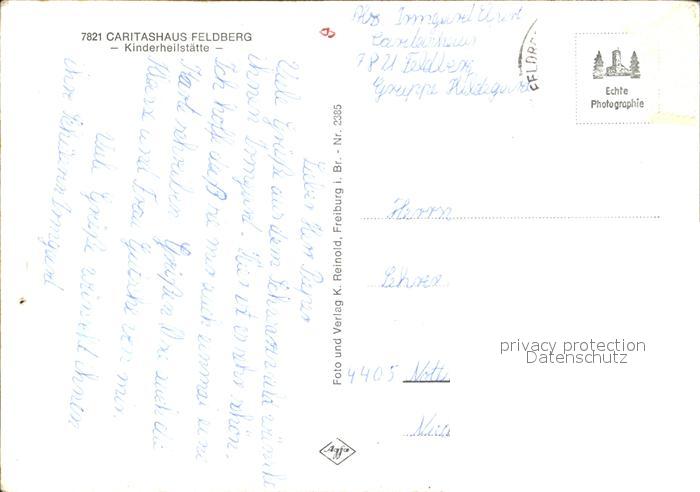 7821 CARITASHAUS FELDBERG
– Kinderheilstätte –
Lieber Herr Pieper
Viele Grüße aus dem Schwarzwald wünscht
Ihnen Irmgard. Hier ist es sehr schön.
Ich hoffe daß sie mir auch einmal eine
Karte schreiben. Grüßen Sie auch die
Klasse und Frau von mir.
Viele Grüße wünscht Ihnen
ihre Schülerin Irmgard
Foto und Verlag K. Reinold, Freiburg i. Br. - Nr. 2385
Abs. Irmgard
Caritashaus
7821 Feldberg
Gruppe Hildegard
FELDBE
Echte
Photographie
Herrn
Lehrer
4405 Nott
privacy protection
Datenschutz
Agfa